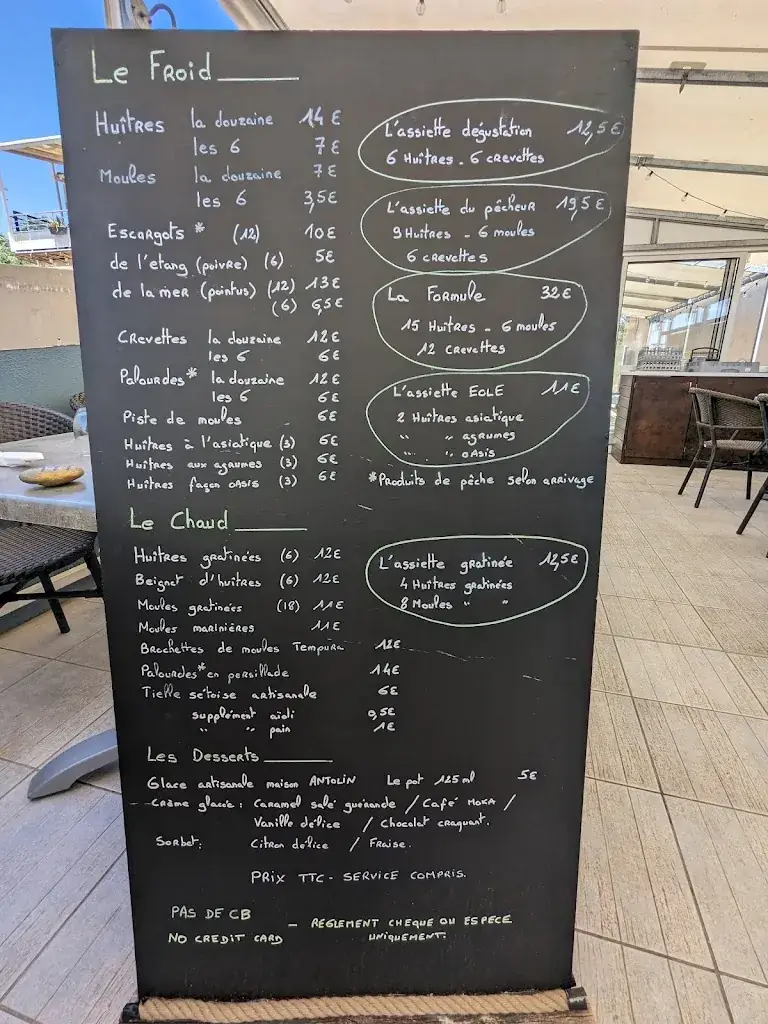 Le Froid
Huîtres la douzaine 14€
les 6 7€
Moules la douzaine 7€
les 6 3,5€
Escargots * (12) 10€
de l'etang (poivre) (6) 5€
de la mer (pointus) (12) 13€
(6) 6,5€
Crevettes la douzaine 12€
les 6 6€
Palourdes* la douzaine 12€
les 6 6€
Piste de moules 6€
Huîtres à l'asiatique (3) 6€
Huîtres aux agrumes (3) 6€
Huîtres façon oasis (3) 6€
L'assiette dégustation 12,5€
6 Huîtres - 6 crevettes
L'assiette du pêcheur 19,5€
9 Huîtres - 6 moules
6 crevettes
La Formule 32€
15 Huîtres - 6 moules
12 crevettes
L'assiette EOLE 11€
2 Huîtres asiatique
" " agrumes
" " oAsis
*Produits de pêche selon arrivage
Le Chaud
Huîtres gratinées (6) 12€
Beignet d'huîtres (6) 12€
Moules gratinées (18) 11€
Moules marinières 11€
Brochettes de moules Tempura 12€
Palourdes* en persillade 14€
Tielle sétoise artisanale 6€
supplément aïoli 0,5€
" " pain 1€
L'assiette gratinée 12,5€
4 Huîtres gratinées
8 Moules " "
Les Desserts
Glace artisanale maison ANTOLIN Le pot 125ml 5€
Crème glacée : Caramel salé guérande / Café MOKA /
Vanille délice / Chocolat craquant.
Sorbet: Citron délice / Fraise.
PRIX TTC - SERVICE COMPRIS.
PAS DE CB — REGLEMENT CHEQUE OU ESPECE
NO CREDIT CARD UNIQUEMENT.